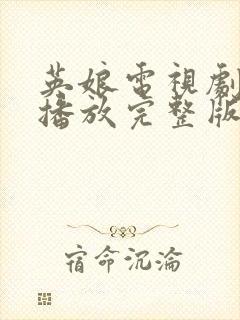 英娘電視劇
播放完整版
宿命沉淪